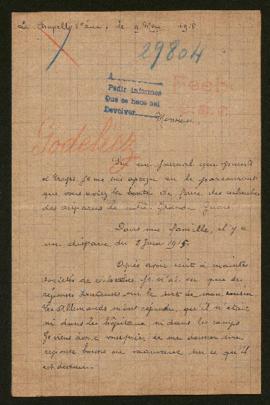 La Chapelle St , le 9 Mai 1918
29804
A
Pedir informes
Que se hace así
Devolver
Monsieur,
Godelitz
un journal que
d'Espagne, je me suis aperçu en le parcourant
que vous aviez la bonté de faire des recherches
des disparus de cette Grande Guerre
Dans ma famille, il y a
un disparu du 2 Juin 1915.
Après avoir écrit à maintes
sociétés de je n'ai eu que des
réponses sur le sort de mon cousin
Les Allemands m'ont répondu, qu'il n'était
ni dans les hôpitaux ni dans les camps
Je viens donc vous prier, de me donner une
réponse bonne ou mauvaise sur ce qu'il
est devenu.